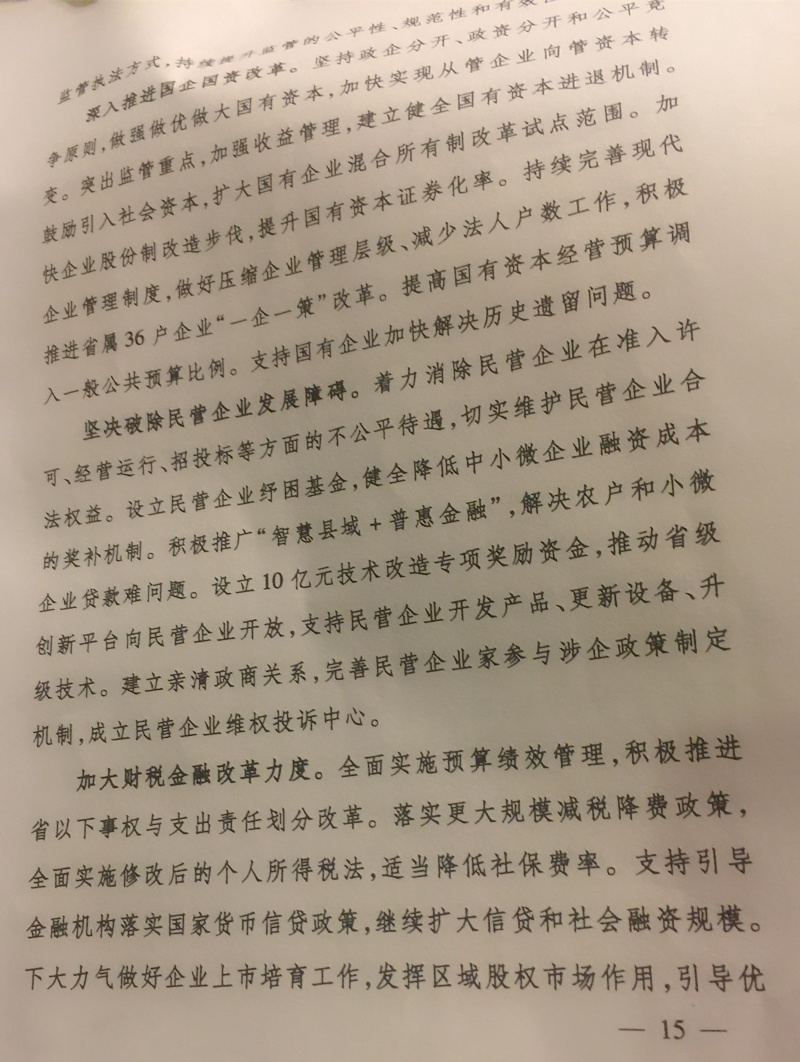 监管执法方式，持续提升监管的公平性、规范性和有效
深入推进国企国资改革。坚持政企分开、政资分开和公平竞
争原则，做强做优做大国有资本，加快实现从管企业向管资本转
变。突出监管重点，加强收益管理，建立健全国有资本进退机制。
鼓励引入社会资本，扩大国有企业混合所有制改革试点范围。加
快企业股份制改造步伐，提升国有资本证券化率。持续完善现代
企业管理制度，做好压缩企业管理层级、减少法人户数工作，积极
推进省属36户企业“一企一策”改革。提高国有资本经营预算调
入一般公共预算比例。支持国有企业加快解决历史遗留问题。
坚决破除民营企业发展障碍。着力消除民营企业在准入许
可、经营运行、招投标等方面的不公平待遇，切实维护民营企业合
法权益。设立民营企业纾困基金，健全降低中小微企业融资成本
的奖补机制。积极推广“智慧县域+普惠金融”，解决农户和小微
企业贷款难问题。设立10亿元技术改造专项奖励资金，推动省级
创新平台向民营企业开放，支持民营企业开发产品、更新设备、升
级技术。建立亲清政商关系，完善民营企业家参与涉企政策制定
机制，成立民营企业维权投诉中心。
加大财税金融改革力度。全面实施预算绩效管理，积极推进
省以下事权与支出责任划分改革。落实更大规模减税降费政策，
全面实施修改后的个人所得税法，适当降低社保费率。支持引导
金融机构落实国家货币信贷政策，继续扩大信贷和社会融资规模。
下大力气做好企业上市培育工作，发挥区域股权市场作用，引导优
— 15 —